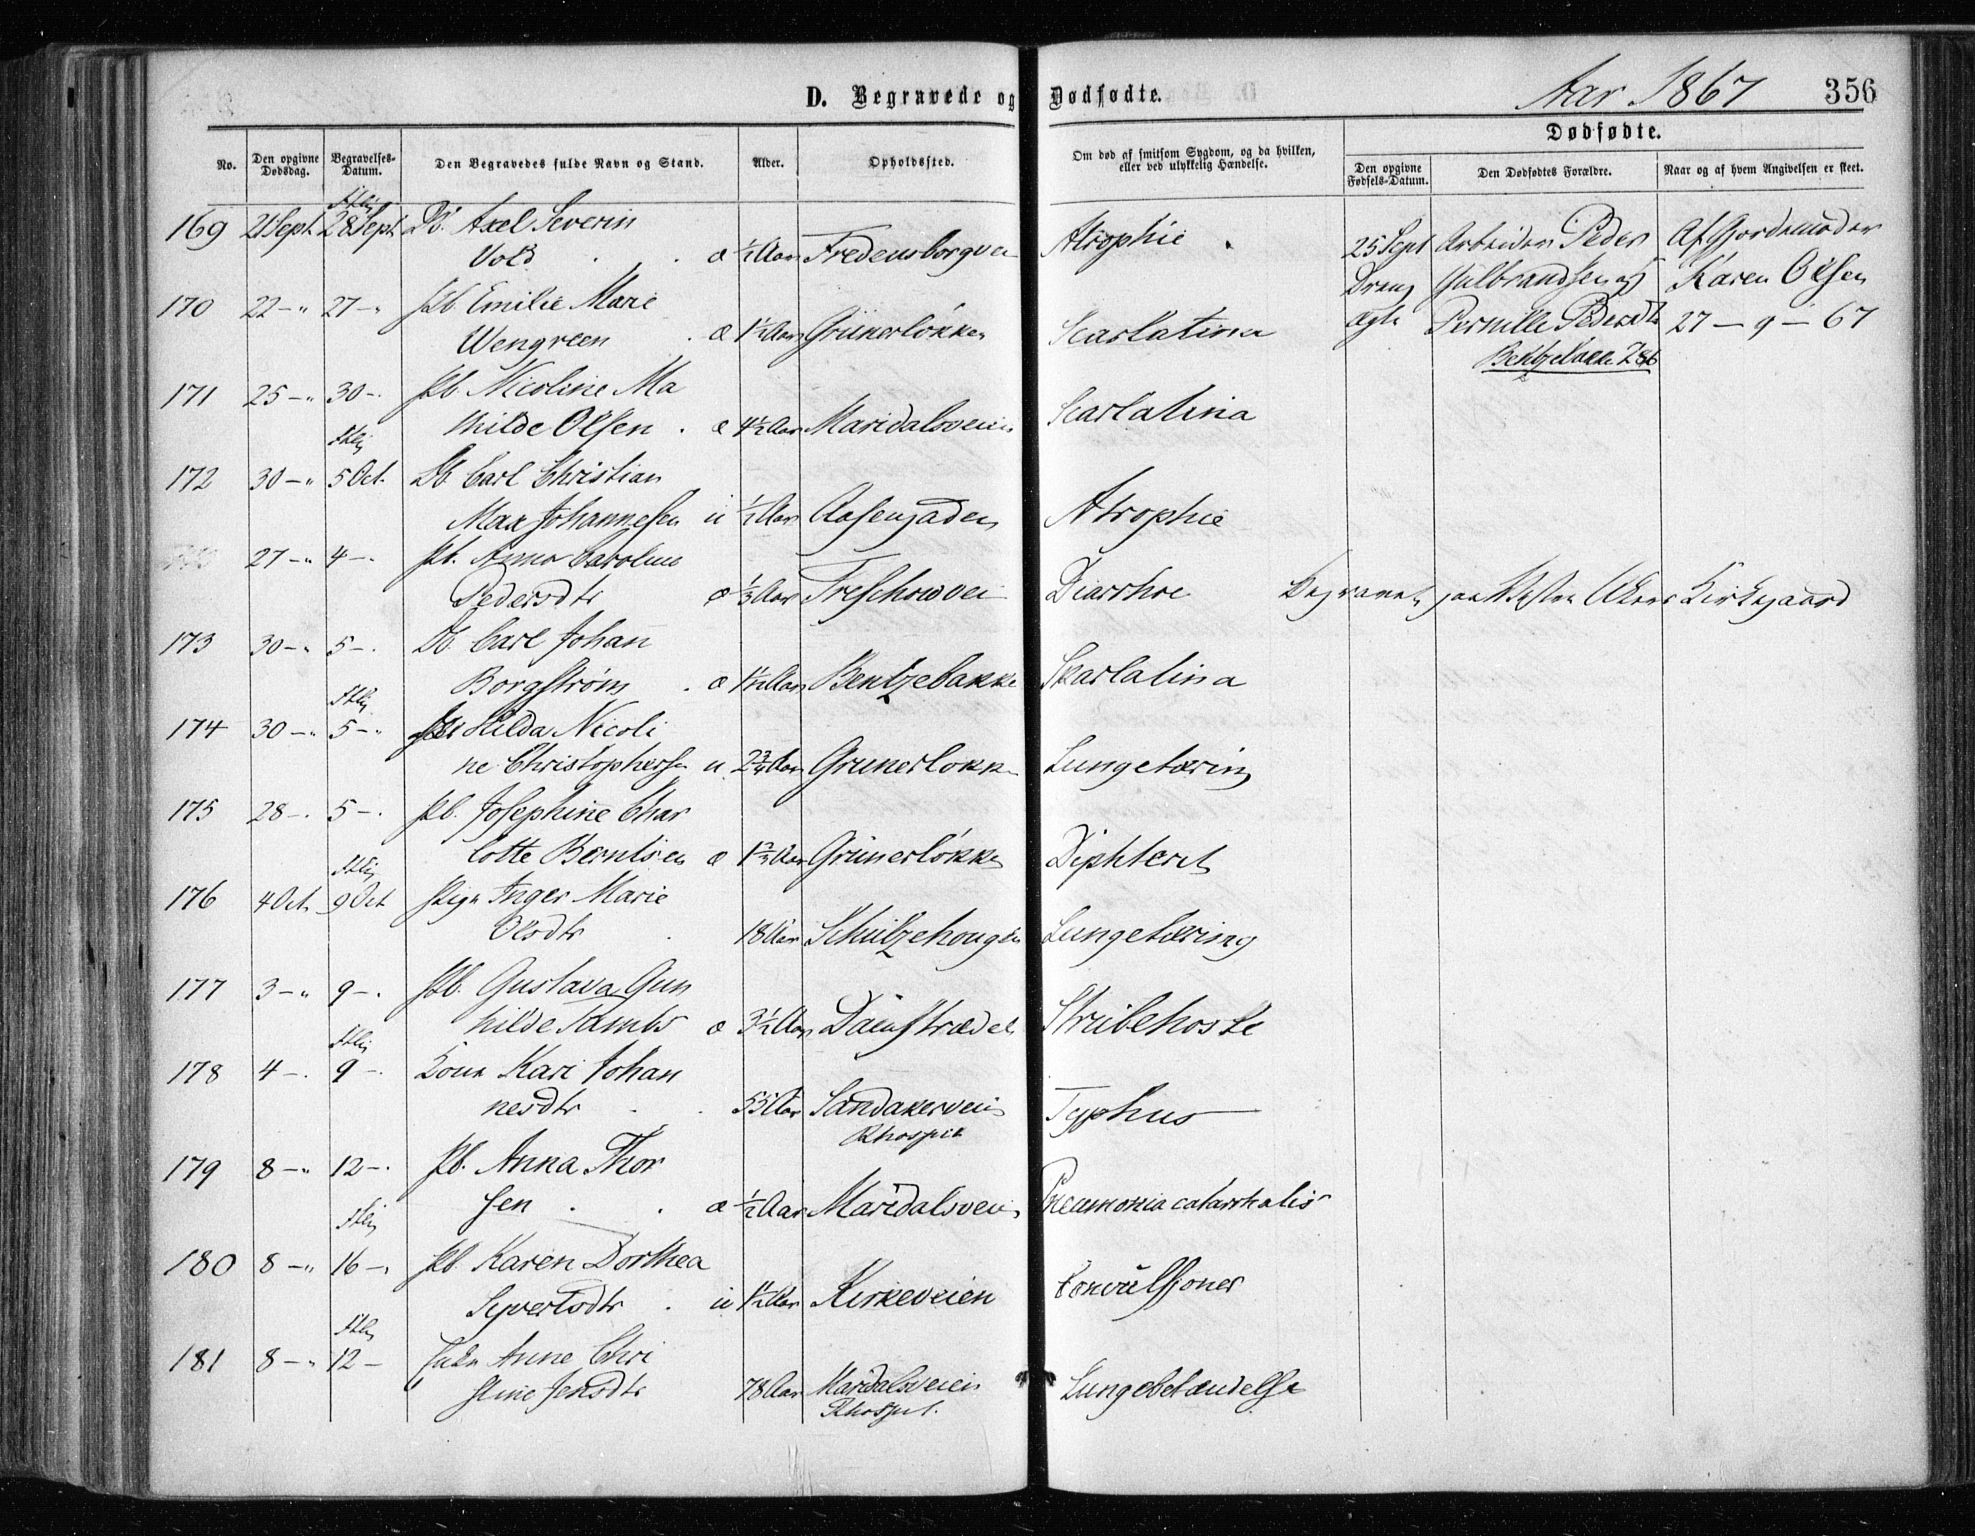 D. Begravede og Dødfødte.
Aar 1867
356
No.
Den opgivne Dødsdag.
Begravelses-Datum.
Den Begravedes fulde Navn og Stand.
Alder.
Opholdssted.
Om død af smitsom Sygdom, og da hvilken, eller ved ulykkelig Hændelse.
Dødfødte.
Den opgivne Fødsels-Datum.
Den Dødfødtes Forældre.
Naar og af hvem Angivelsen er skeet.
169 21 Sept 28 Sept Db. Axel Severin
Vold æ ½ Aar Fredensborgvei Atrophie
25 Sept Arbeider Peder Af Gjordemoder
Dreng Gulbrandsen og Karen Olsen
ægte Pernille Pedersdtr 27 - 9 - 67
Bentzebakke 286
170 22 -"- 27 -"- Pb. Emilie Marie
Wengreen æ 1½ Aar Grünerløkken Scarlatina
171 25 -"- 30 - Pb. Nicoline Ma
thilde Olsen æ 4½ Aar Maridalsveien Scarlatina
172 30 -"- 5 Oct. Db. Carl Christian
Max Johannesen u ½ Aar Aasengaden Atrophie
27 -"- 4 - Pb. Anna Caroline
Pedersdtr æ ⅓ Aar Treschowvei Diarrhoe Begravet paa Vestre Akers Kirkegaard
173 30 -"- 5 - Db. Carl Johan
Borgstrøm æ 1½ Aar Bentzebakke Skarlatina
174 30 -"- 5 -"- Hilda Nicoli
ne Christophersen u 2¾ Aar Grünerløkke Lungetæring
175 28 - 5 - Pb. Josephine Char
lotte Berntsen æ 1⅔ Aar Grünerløkke Diphterit
176 4 Oct. 9 Oct Pige Inger Marie
Olsdtr 18 Aar Schultzehougen Lungetæring
177 3 -"- 9 - Pb. Gustava Gun
hilde æ 3½ Aar Dampstrædet Strubehoste
178 4 - 9 - Kone Kari Johan
nesdtr 55 Aar Sandakerveien Typhus
Khospit
179 8 -"- 12 - Pb. Anna Thor
sen æ ½ Aar Maridalsveien Pneumonia catarrhalis
180 8 -"- 16 - Pb. Karen Dorthea
Syvertsdtr u 1½ Aar Kirkeveien Convulsjoner
181 8 -"- 12 - Enke Anne Chri
stine Jensdtr 78 Aar Maridalsveien Lungebetændelse
Khospit.